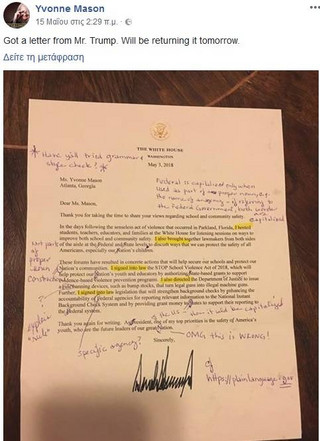 Yvonne Mason
15 Μαΐου στις 2:29 π.μ. ·
Got a letter from Mr. Trump. Will be returning it tomorrow.
Δείτε τη μετάφραση
THE WHITE HOUSE
WASHINGTON
May 3, 2018
Have y'all tried grammar &
style check?
Federal is capitalized only when
used as part of a proper noun
capitalized
Ms. Yvonne Mason
Atlanta, Georgia
Dear Ms. Mason,
Thank you for taking the time to share your views regarding school and community safety.
In the days following the senseless act of violence that occurred in Parkland, Florida, I hosted
students, teachers, educators, and families at the White House for listening sessions on ways to
improve both school and community safety. I also brought together lawmakers from both sides
of the aisle at the Federal and State levels to discuss ways that we can protect the safety of all
Americans, especially our Nation's children.
These forums resulted in concrete actions that will help secure our schools and protect our
Nation's communities. I signed into law the STOP School Violence Act of 2018, which will
help protect our Nation's youth and educators by authorizing grants to support
evidence-based violence prevention programs. I also directed the Department of Justice to issue
a rule banning devices, such as bump stocks, that turn legal guns into illegal machine guns.
Further, I signed into law legislation that will strengthen background checks by enhancing the
accountability of Federal agencies for reporting relevant information to the National Instant
Background Check System and by providing grant money to states to support their reporting to
the federal system.
Thank you again for writing. As President, one of my top priorities is the safety of America's
youth, who are the future leaders of our great Nation.
Sincerely,
explain
"rule"
Specific agency?
OMG this is WRONG!
cf
https://plainlanguage.gov